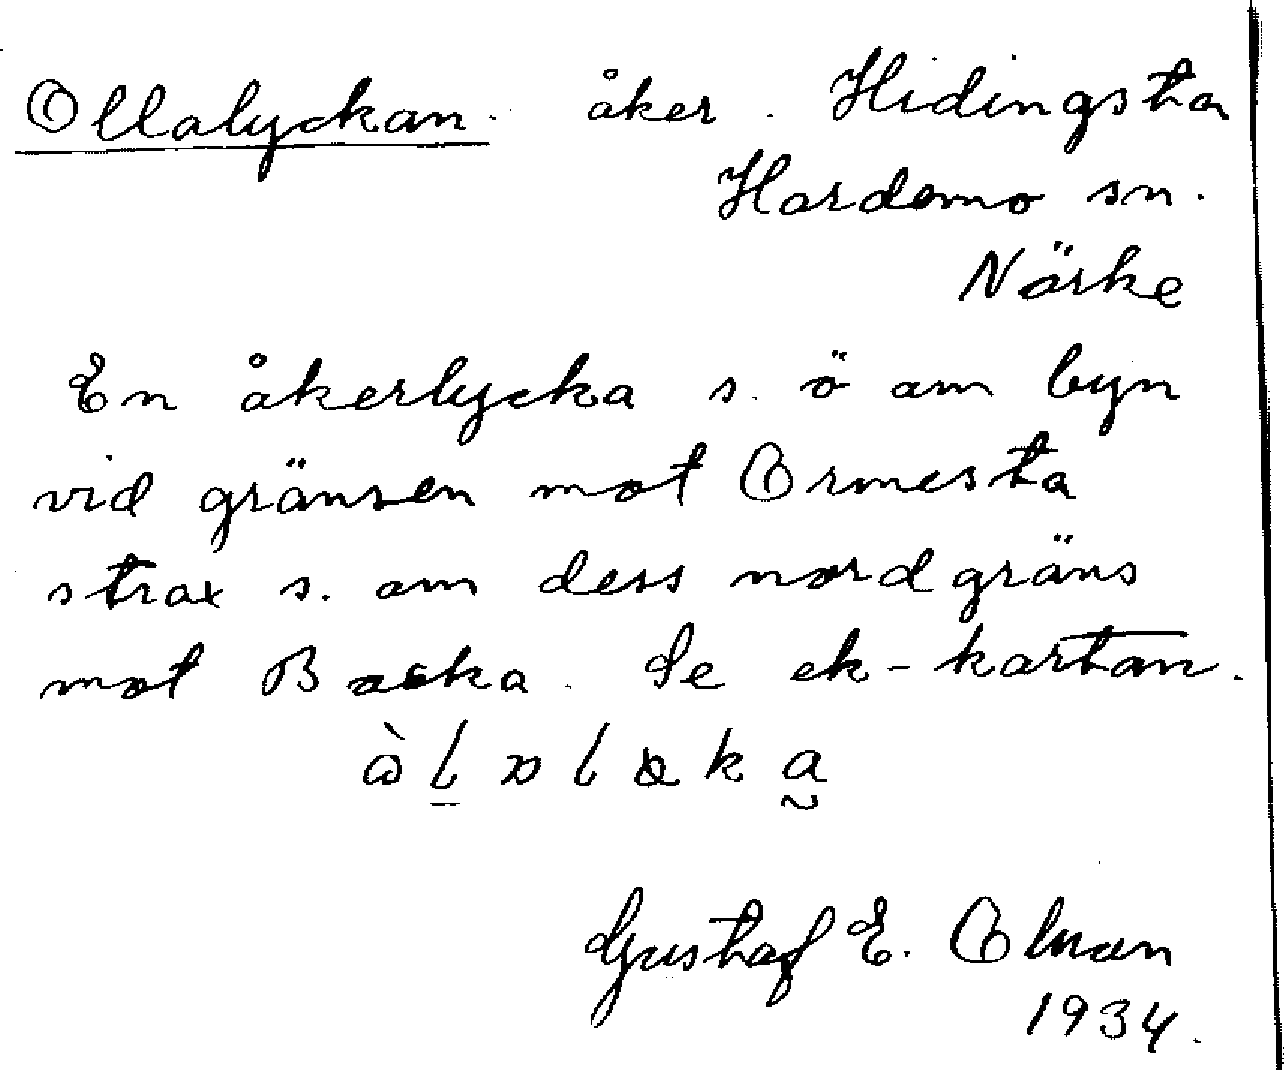 Ollalyckan. åker. Hidingsta
Hardemo sn.
Närke
En åkerlycka s. ö om byn
vid gränsen mot Ormesta
strax s. om dess nordgräns
mot Backa. Se ek-kartan.
Gustaf E. Olman
1934.